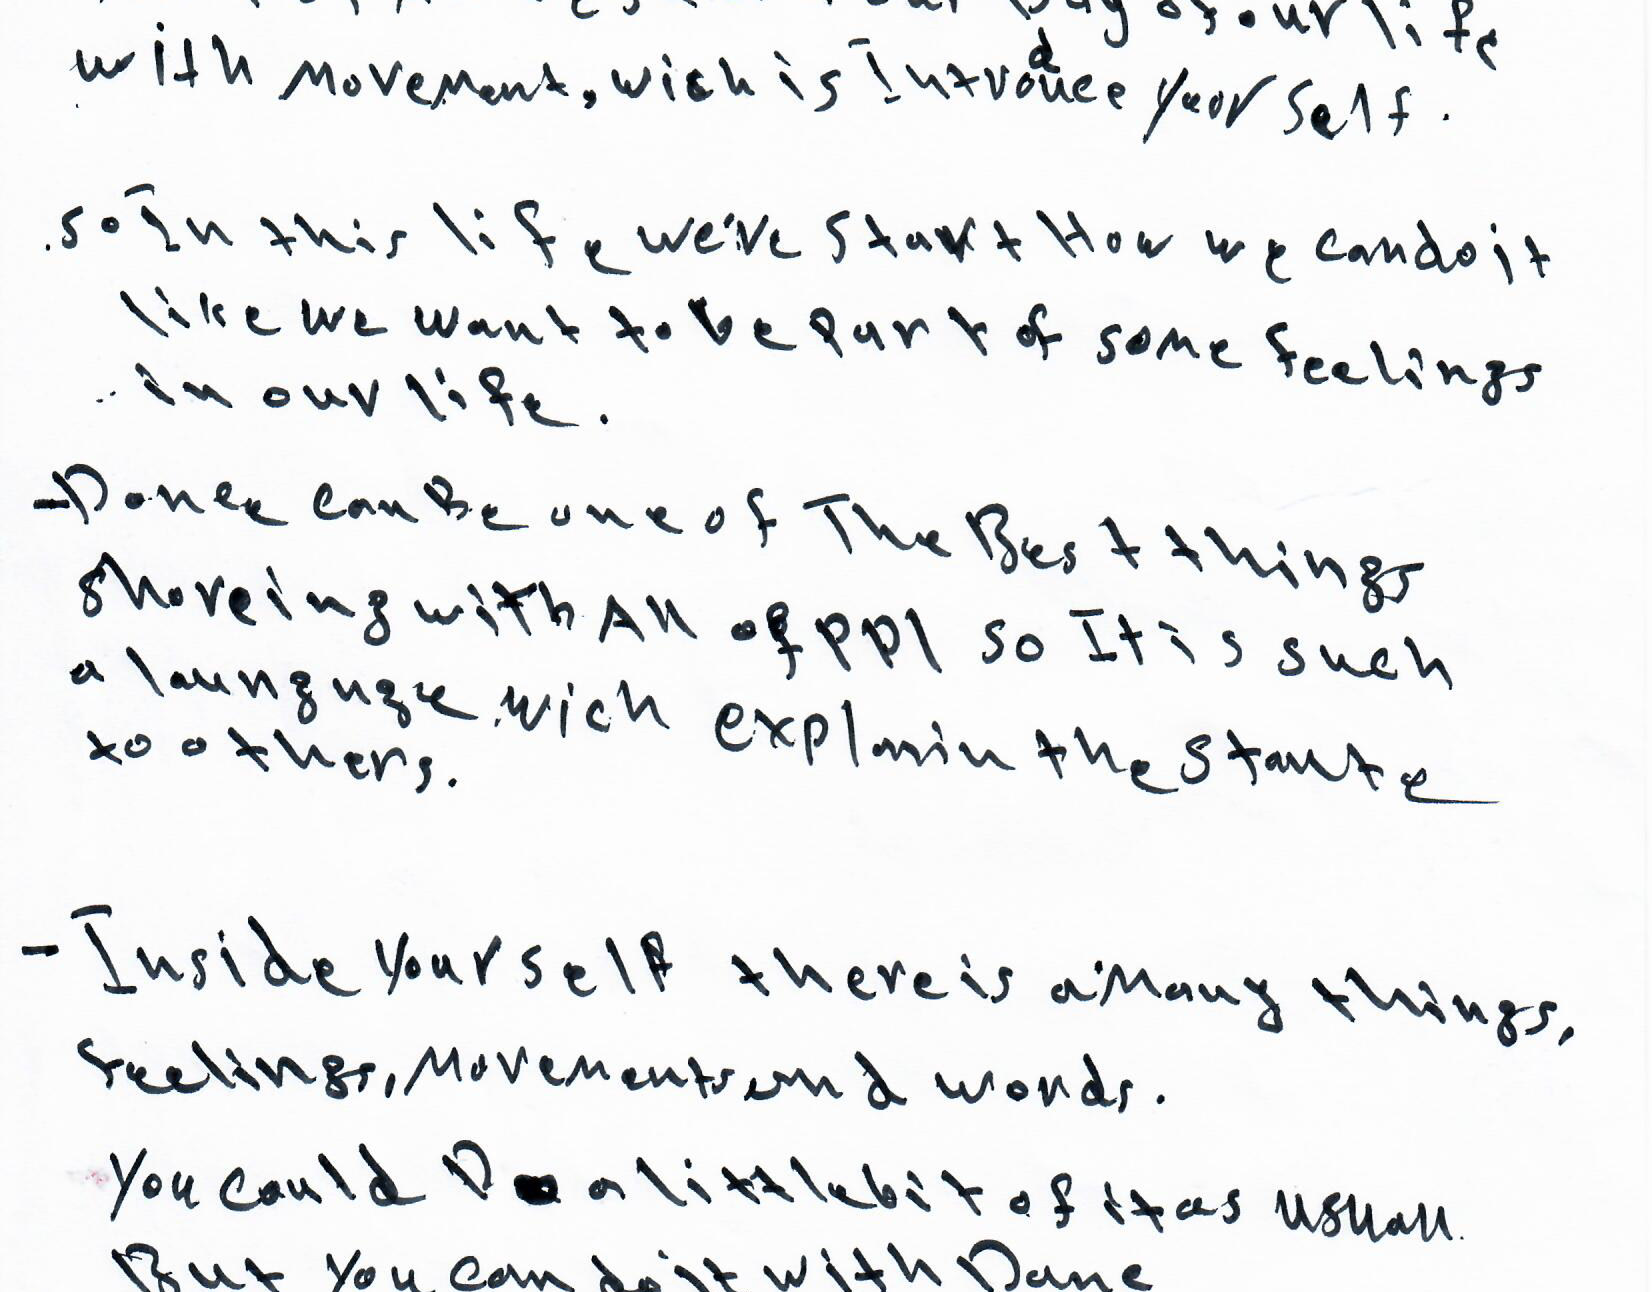 our Day of our life
with Movement, wich is Introduce your self.
.so In this life we've Start How we can do it
like we want to be part of some feelings
in our life.
-Dance can Be one of The Best things
shareing with All of ppl so It is such
a launguge wich explain the state
to others.
-Inside Your self there is a Many things,
feelings, Movements and words.
You could Do a little bit of it as usuall.
But You can do it with Dance